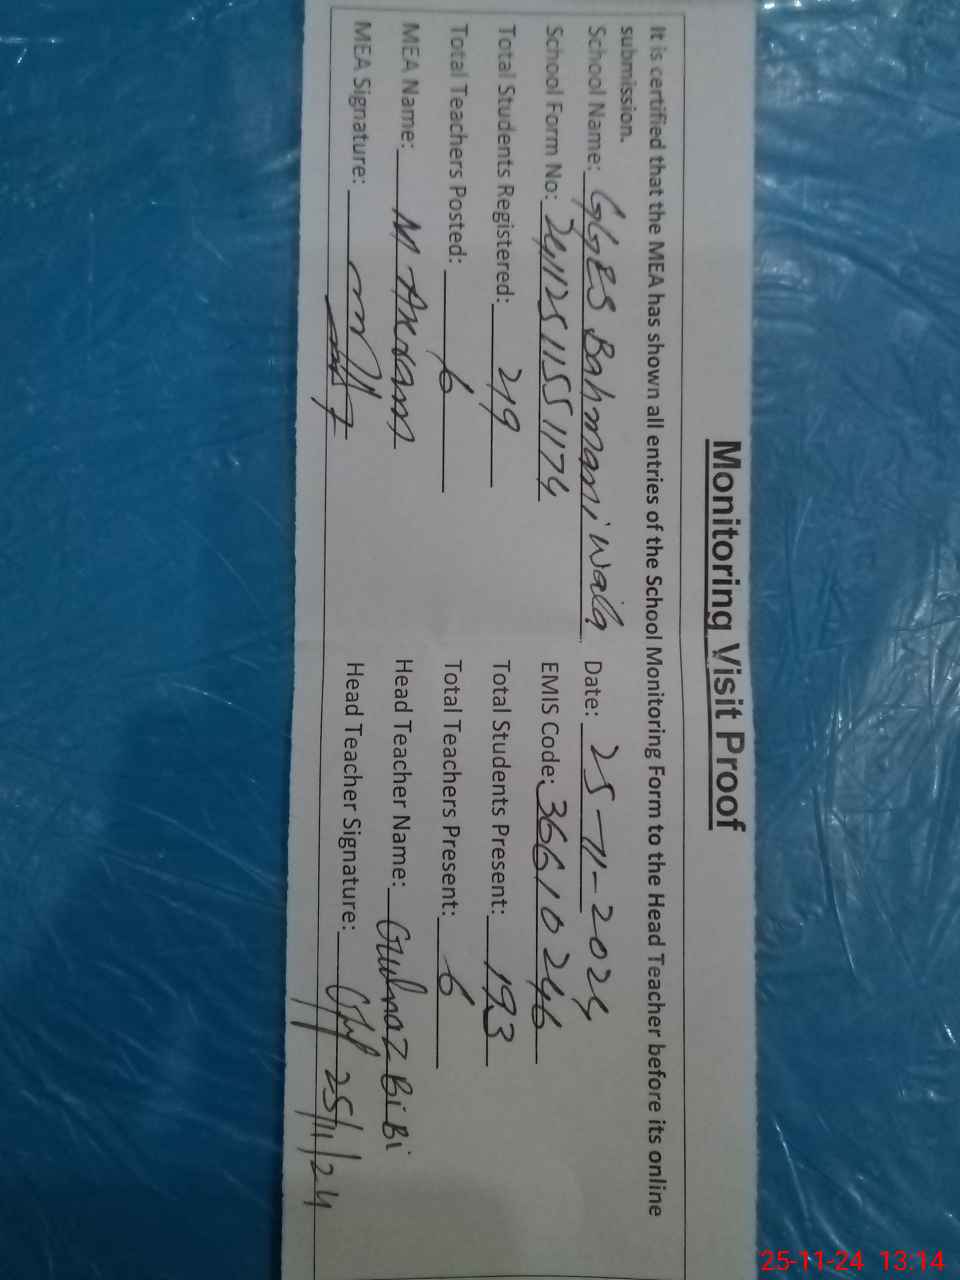 Monitoring Visit Proof
It is certified that the MEA has shown all entries of the School Monitoring Form to the Head Teacher before its online
submission.
School Name: GGES Bahmani wala Date: 25-11-2024
School Form No: 24112511551174 EMIS Code: 36610246
Total Students Registered: 219 Total Students Present: 193
Total Teachers Posted: 6 Total Teachers Present: 6
MEA Name: M Akram Head Teacher Name: Gulnaz BiBi
MEA Signature: Head Teacher Signature: 25/11/24
25-11-24 13:14